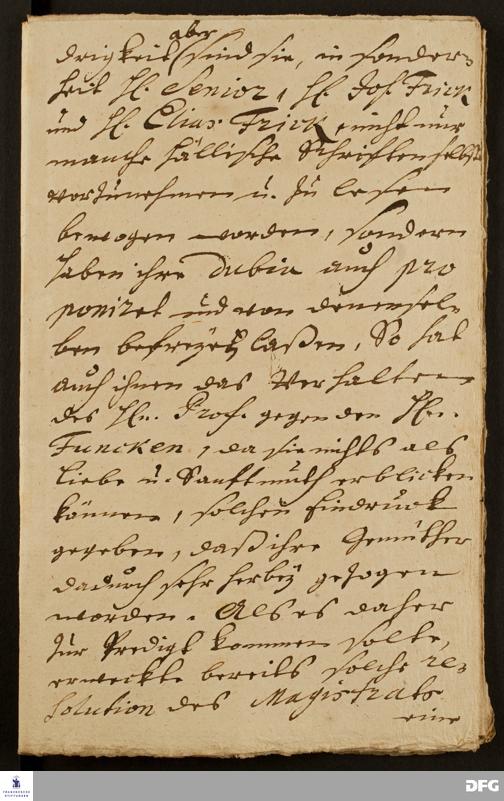 drigkeit aber sind sie, in sonder-
heit H. Senior, H. Joh. Frick
und H. Elias Frick, nicht nur
manche Hällische Schrifften selbst
vorzunehmen u. zu lesen
bewogen worden, sondern
haben ihre dubia auch pro
poniret und von denensel-
ben befreyet laßen, So hat
auch ihnen das Verhalten
des Hn. Prof. gegen den Hn.
Funcken, da sie nichts als
Liebe u. Sanftmuth erblicken
können, solchen Eindruck
gegeben, daß ihre Gemüther
dadurch sehr herbey gezogen
worden. Als es daher
zur Predigt kommen solte,
erweckte bereits solche re-
solution des Magistrats
eine
FRANCKESCHE STIFTUNGEN
DFG